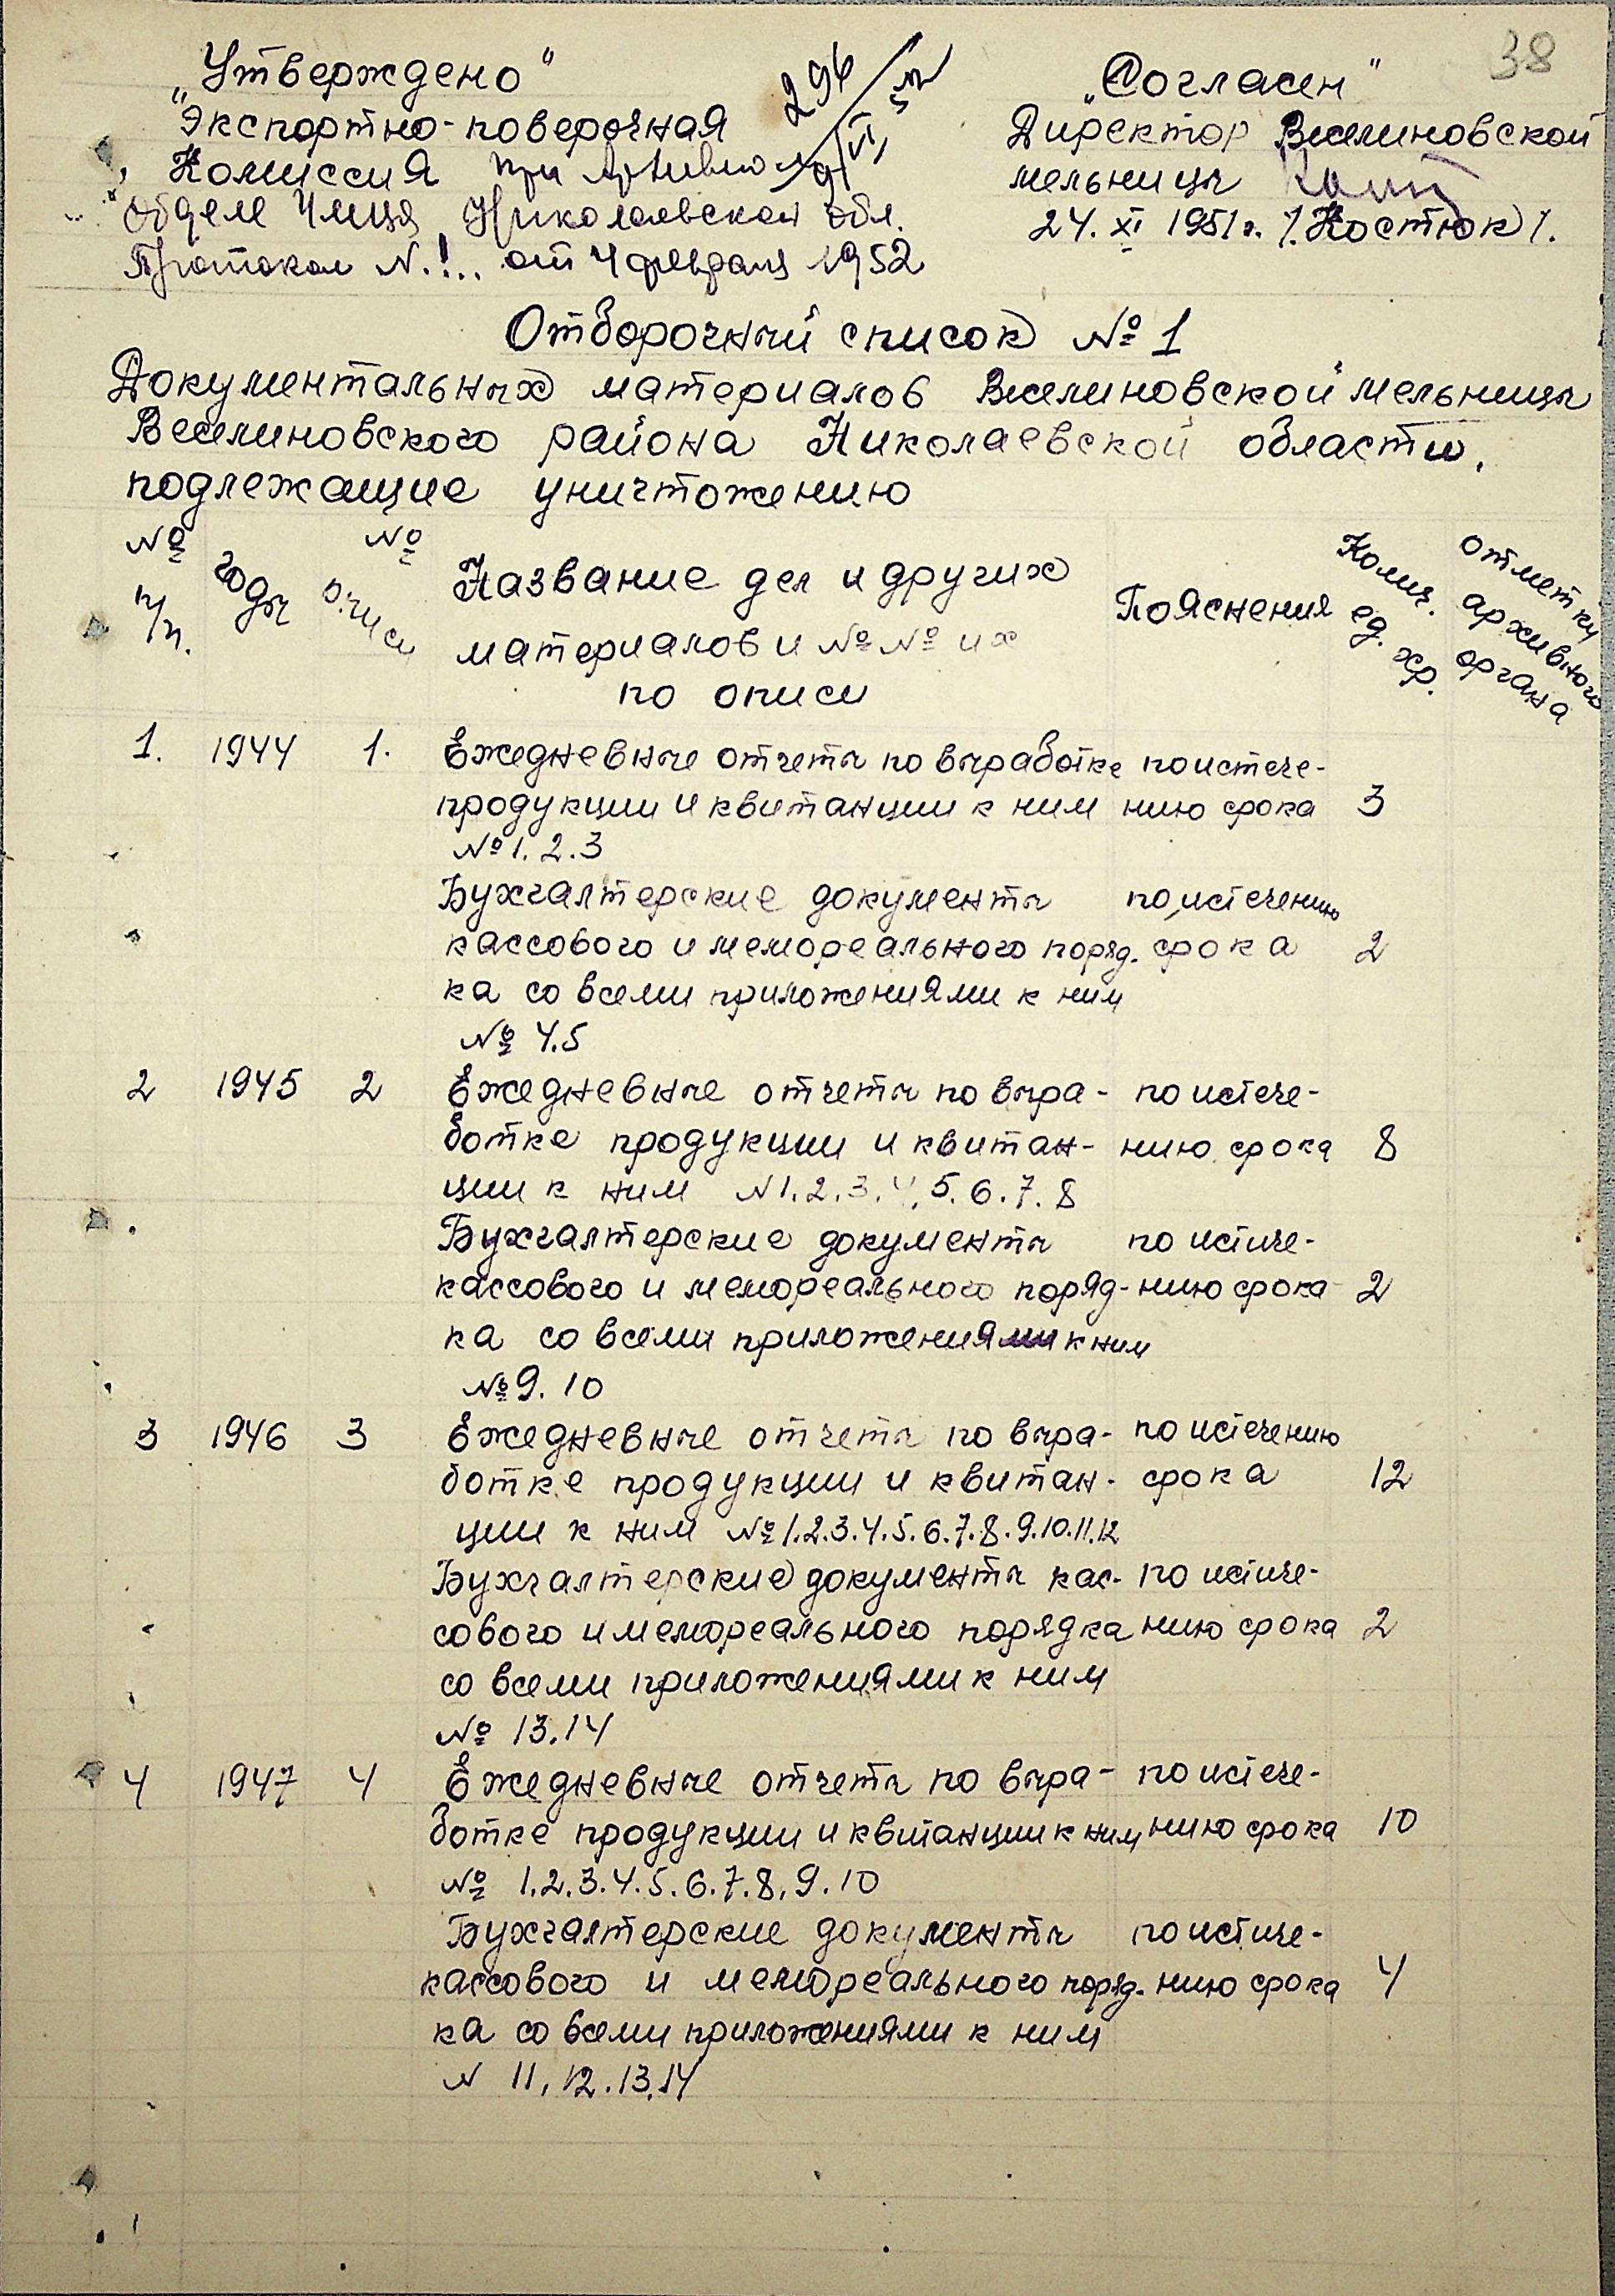 38
„Утверждено"
„Экспортно-поверочная
Комиссия при Архивном
отделе УМГБ Николаевской обл.
Протокол N.1.. от 4 февраля 1952
296
„Согласен"
Директор Веселиновской
мельницы
24. XI 1951 г. /.Костюк/.
Отборочный список № 1
Документальных материалов Веселиновской мельницы
Веселиновского района Николаевской области,
подлежащие уничтожению
№ п/п. годы № описи Название дел и других материалов и №№ их по описи Пояснения Колич. ед. хр. отметку архивного органа
1. 1944 1. Ежедневные отчеты по выработке по истече-
продукции и квитанции к ним нию срока 3
№ 1. 2. 3
Бухгалтерские документы по истечению
кассового и мемореального поряд- срока 2
ка со всеми приложениями к ним
№ 4.5
2 1945 2 Ежедневные отчеты по выра- по истече-
ботке продукции и квитан- нию срока 8
ции к ним N 1. 2. 3. 4. 5. 6. 7. 8
Бухгалтерские документы по истече-
кассового и мемореального поряд- нию срока 2
ка со всеми приложениями к ним
№ 9. 10
3 1946 3 Ежедневные отчеты по выра- по истечению
ботке продукции и квитан- срока 12
ции к ним № 1.2.3.4.5.6.7.8.9.10.11.12
Бухгалтерские документы кас- по истече-
сового и мемореального порядка нию срока 2
со всеми приложениями к ним
№ 13.14
4 1947 4 Ежедневные отчеты по выра- по истече-
ботке продукции и квитанции к ним нию срока 10
№ 1.2.3.4.5.6.7.8.9.10
Бухгалтерские документы по истече-
кассового и мемореального поряд- нию срока 4
ка со всеми приложениями к ним
N 11, 12. 13. 14